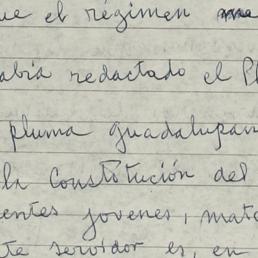 ue el régimen
abía redactado el Pl
pluma guadalupan
la Constitución del
entes jovenes, mat
te servidor es, en